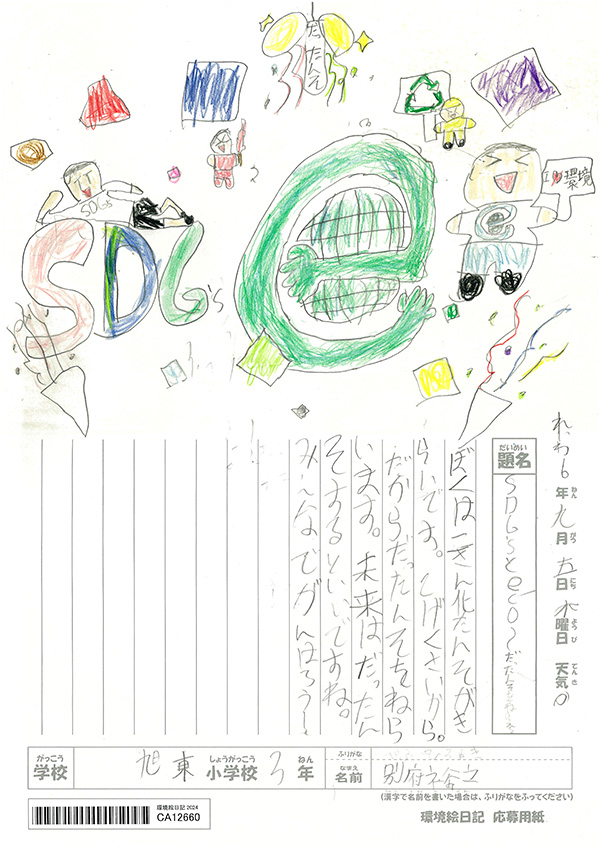 だったんそ
SDGs
環境
SDG's
e
e
れいわ6年九月五日水曜日 天気
ねん がつ にち ようび てんき
だいめい
題名
SDG'sとeco
ぼくは二さん化たんそがき
らいです。
だからだったんそをねら
います。未来はだったん
そするといいですね。
み〜んなでがんばろう!
がっこう しょうがっこう ねん
学校 旭東小学校 3年
ふりがな
なまえ
名前 別府
(漢字で名前を書いた場合は、ふりがなをふってください)
環境絵日記 2024
CA12660
環境絵日記 応募用紙